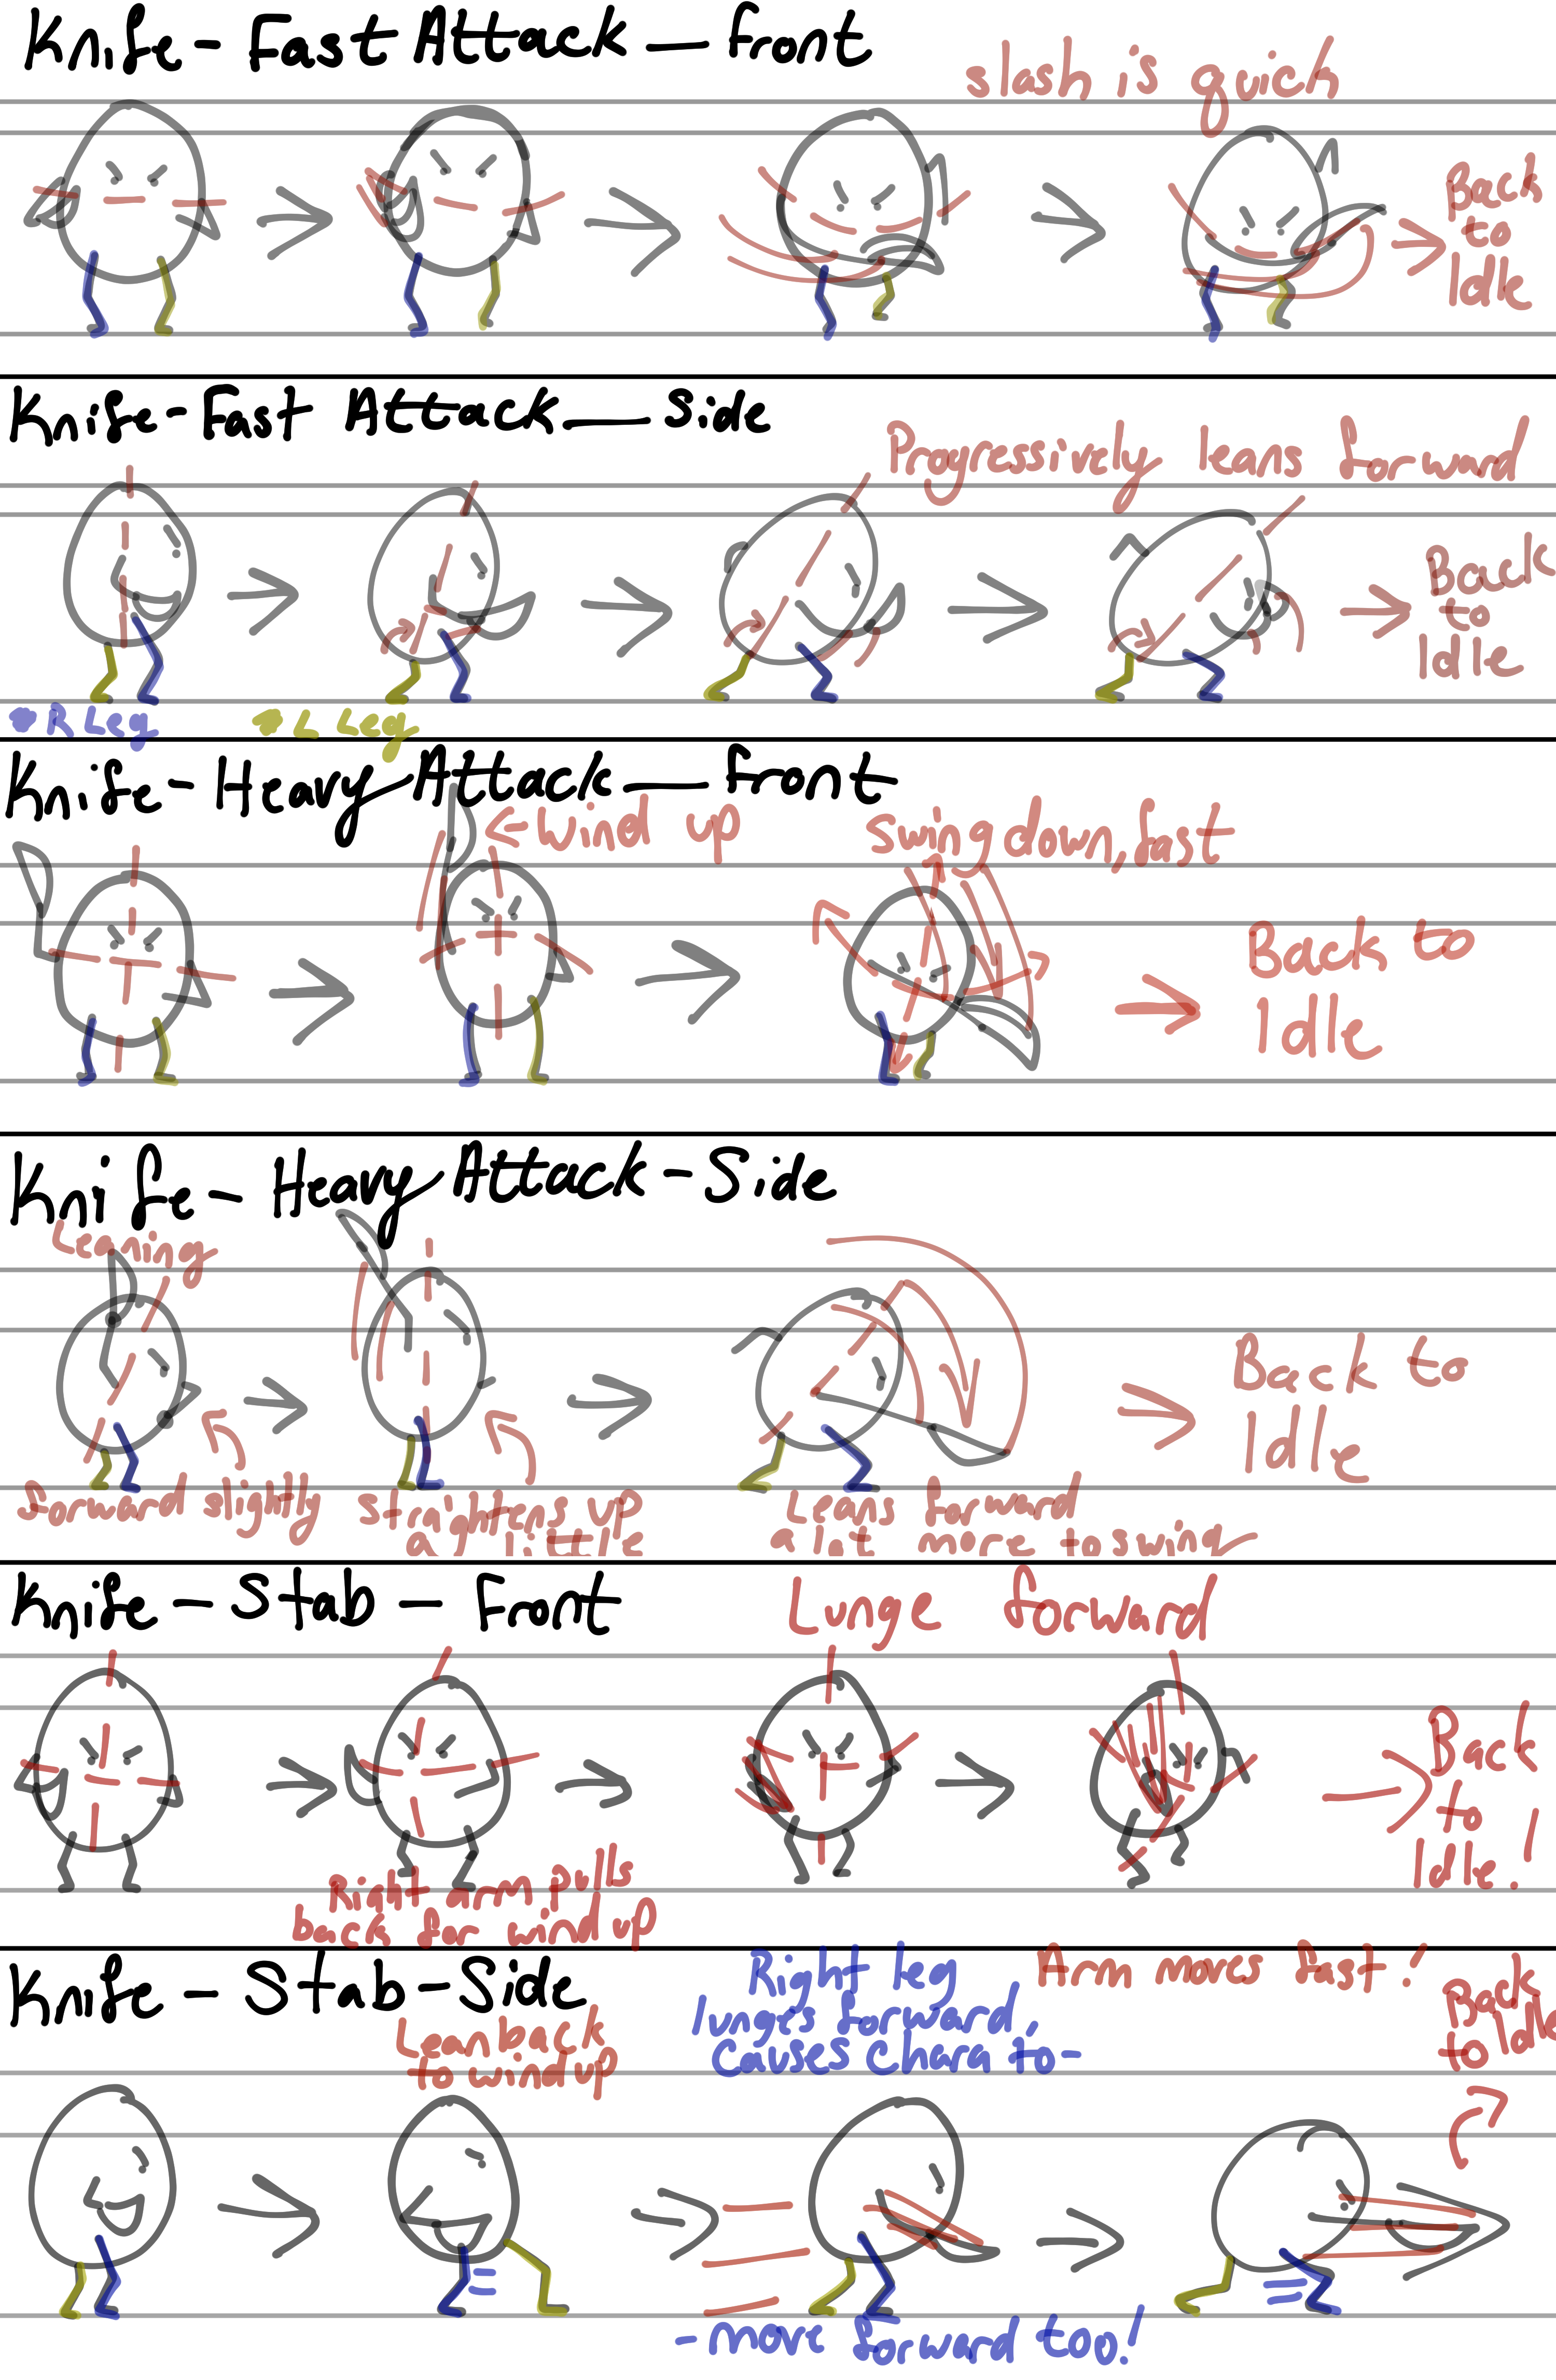 Knife - Fast Attack — front
slash is quick
Back
to
Idle
Knife - Fast Attack — Side
Progressively leans forward
Back
to
Idle
R Leg
L Leg
Knife - Heavy Attack — front
Wind up
swing down, fast
Back to
Idle
Knife - Heavy Attack - Side
Leaning
forward slightly
straightens up
a little
Leans forward
a lot more to swing
Back to
Idle
Knife - Stab - Front
Lunge forward
Right arm pulls
back for windup
Back
to
Idle!
Knife - Stab - Side
Lean back
to wind up
Right leg
lunges forward,
causes chara to -
- more forward too!
Arm moves fast!
Back
to Idle